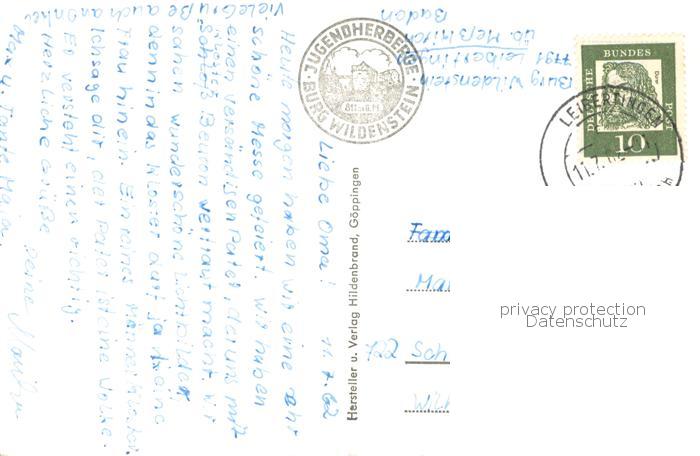 Burg Wildenstein
7791 Leibertingen
üb. Meßkirch
Baden
11.7.62
Liebe Oma!
Heute morgen haben wir eine sehr
schöne Messe gefeiert. Wir haben
einen verständigen Pater, der uns mit
Schloß Beuron vertraut macht. Wir
sahen wunderschöne Lichtbilder
denn in das Kloster darf ja keine
Frau hinein. Ein reines Männerkloster
Ich sage dir, der Pater ist eine Wolke.
Er versteht einen richtig.
Herzliche Grüße
deine
Viele Grüße
auch an Onkel
Max u. Tante Maria
JUGENDHERBERGE
BURG WILDENSTEIN
811 m ü. M.
Hersteller u. Verlag Hildenbrand, Göppingen
DEUTSCHE
BUNDES
10
LEIBERTINGEN
11.7.62
Fam
Ma
722 Sch
privacy protection
Datenschutz